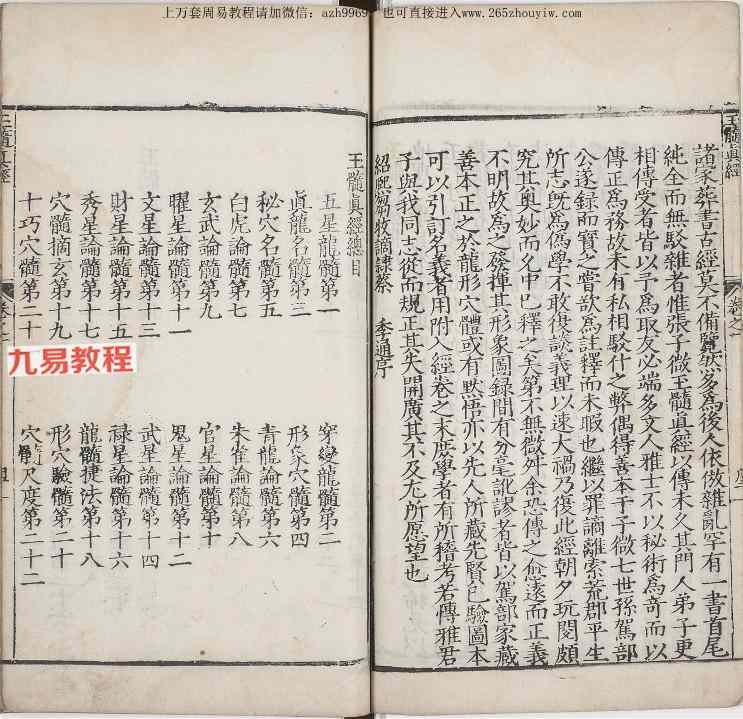 上万套周易教程请加微信：azh9969 也可直接进入www.265zhouyiw.com
玉髓眞經
卷之一
諸家葬書古經莫不備覽然多爲後人依倣雜亂罕有一書首尾
純全而無駁雜者惟張子微玉髓眞經以傳未久其門人弟子更
相傳受者皆以予爲取友必端多文人雅士不以秘術爲竒而以
傳正爲務故未有私相駁什之弊偶得善本于子微七世孫駕部
公遂録而寳之嘗欲爲註釋而未暇也繼以罪謫離索荒郡平生
所志旣爲僞學不敢復談義理以速大禍乃復此經朝夕玩閱頗
究其奥妙而名中巳釋之矣第不無微舛余恐傳之愈遠而正義
不明故爲之發揮其形象圖録間有分毫訛謬者皆以駕部家藏
善本正之於龍形穴體或有黙悟亦以先人所藏先賢已驗圖本
可以引訂名義者用附入經卷之末庶學者有所稽考若傳雅君
子與我同志從而規正其失開廣其不及尤所愿望也
紹熙 牧謫隷蔡 季通序
玉髓眞經總目
五星龍髓第一 穿變龍髓第二
眞龍名髓第三 形家穴髓第四
秘穴名髓第五 青龍論髓第六
白虎論髓第七 朱雀論髓第八
玄武論髓第九 官星論髓第十
曜星論髓第十一 鬼星論髓第十二
文星論髓第十三 武星論髓第十四
財星論髓第十五 禄星論髓第十六
秀星論髓第十七 龍髓捷法第十八
穴髓摘玄第十九 形穴驗髓第二十
十巧穴髓第二十 穴髓尺度第二十二
玉髓眞經
卷之一
九易教程